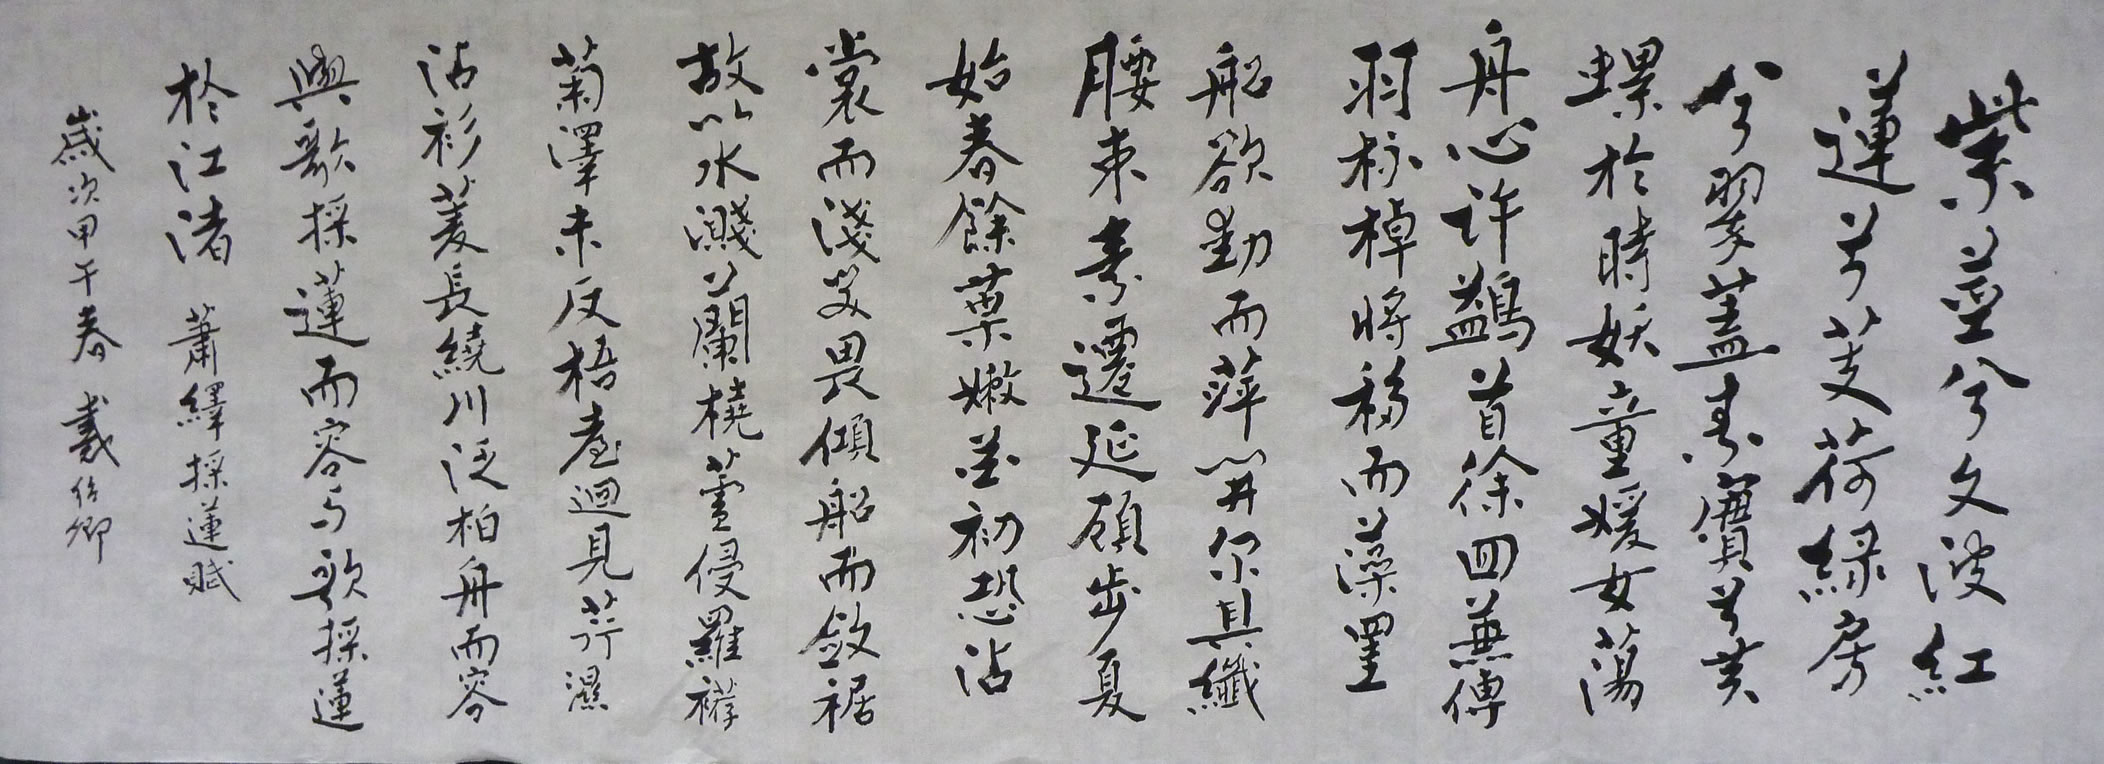 紫莖兮文波紅
蓮兮芰荷綠房
兮翠蓋素實兮黃
螺於時妖童媛女蕩
舟心許鷁首徐回兼傳
羽杯棹將移而藻罣
船欲動而萍開尔其纖
腰束素遷延顧步夏
始春餘葉嫩花初恐沾
裳而淺笑畏傾船而斂裾
故以水濺蘭橈蘆侵羅
菊澤未反梧臺迴見荇濕
沾衫菱長繞川泛柏舟而容
與歌採蓮而容与歌採蓮
於江渚 蕭繹採蓮賦
歲次甲午春 卿